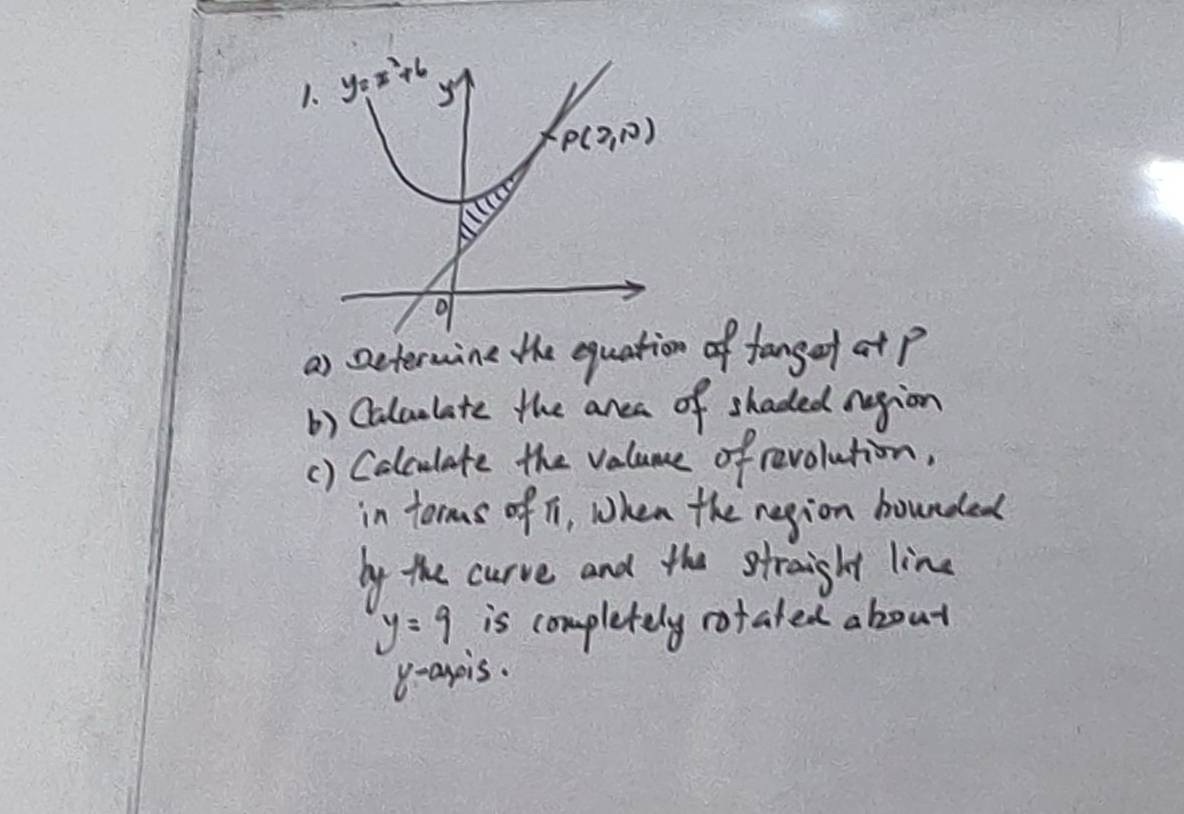 1. y=x²+6
y
P(2,10)
0
a) Determine the equation of tanget at P
b) Calculate the area of shaded region
c) Calculate the valume of revolution,
in terms of π, when the region bounded
by the curve and the straight line
y=9 is completely rotated about
y-axis.